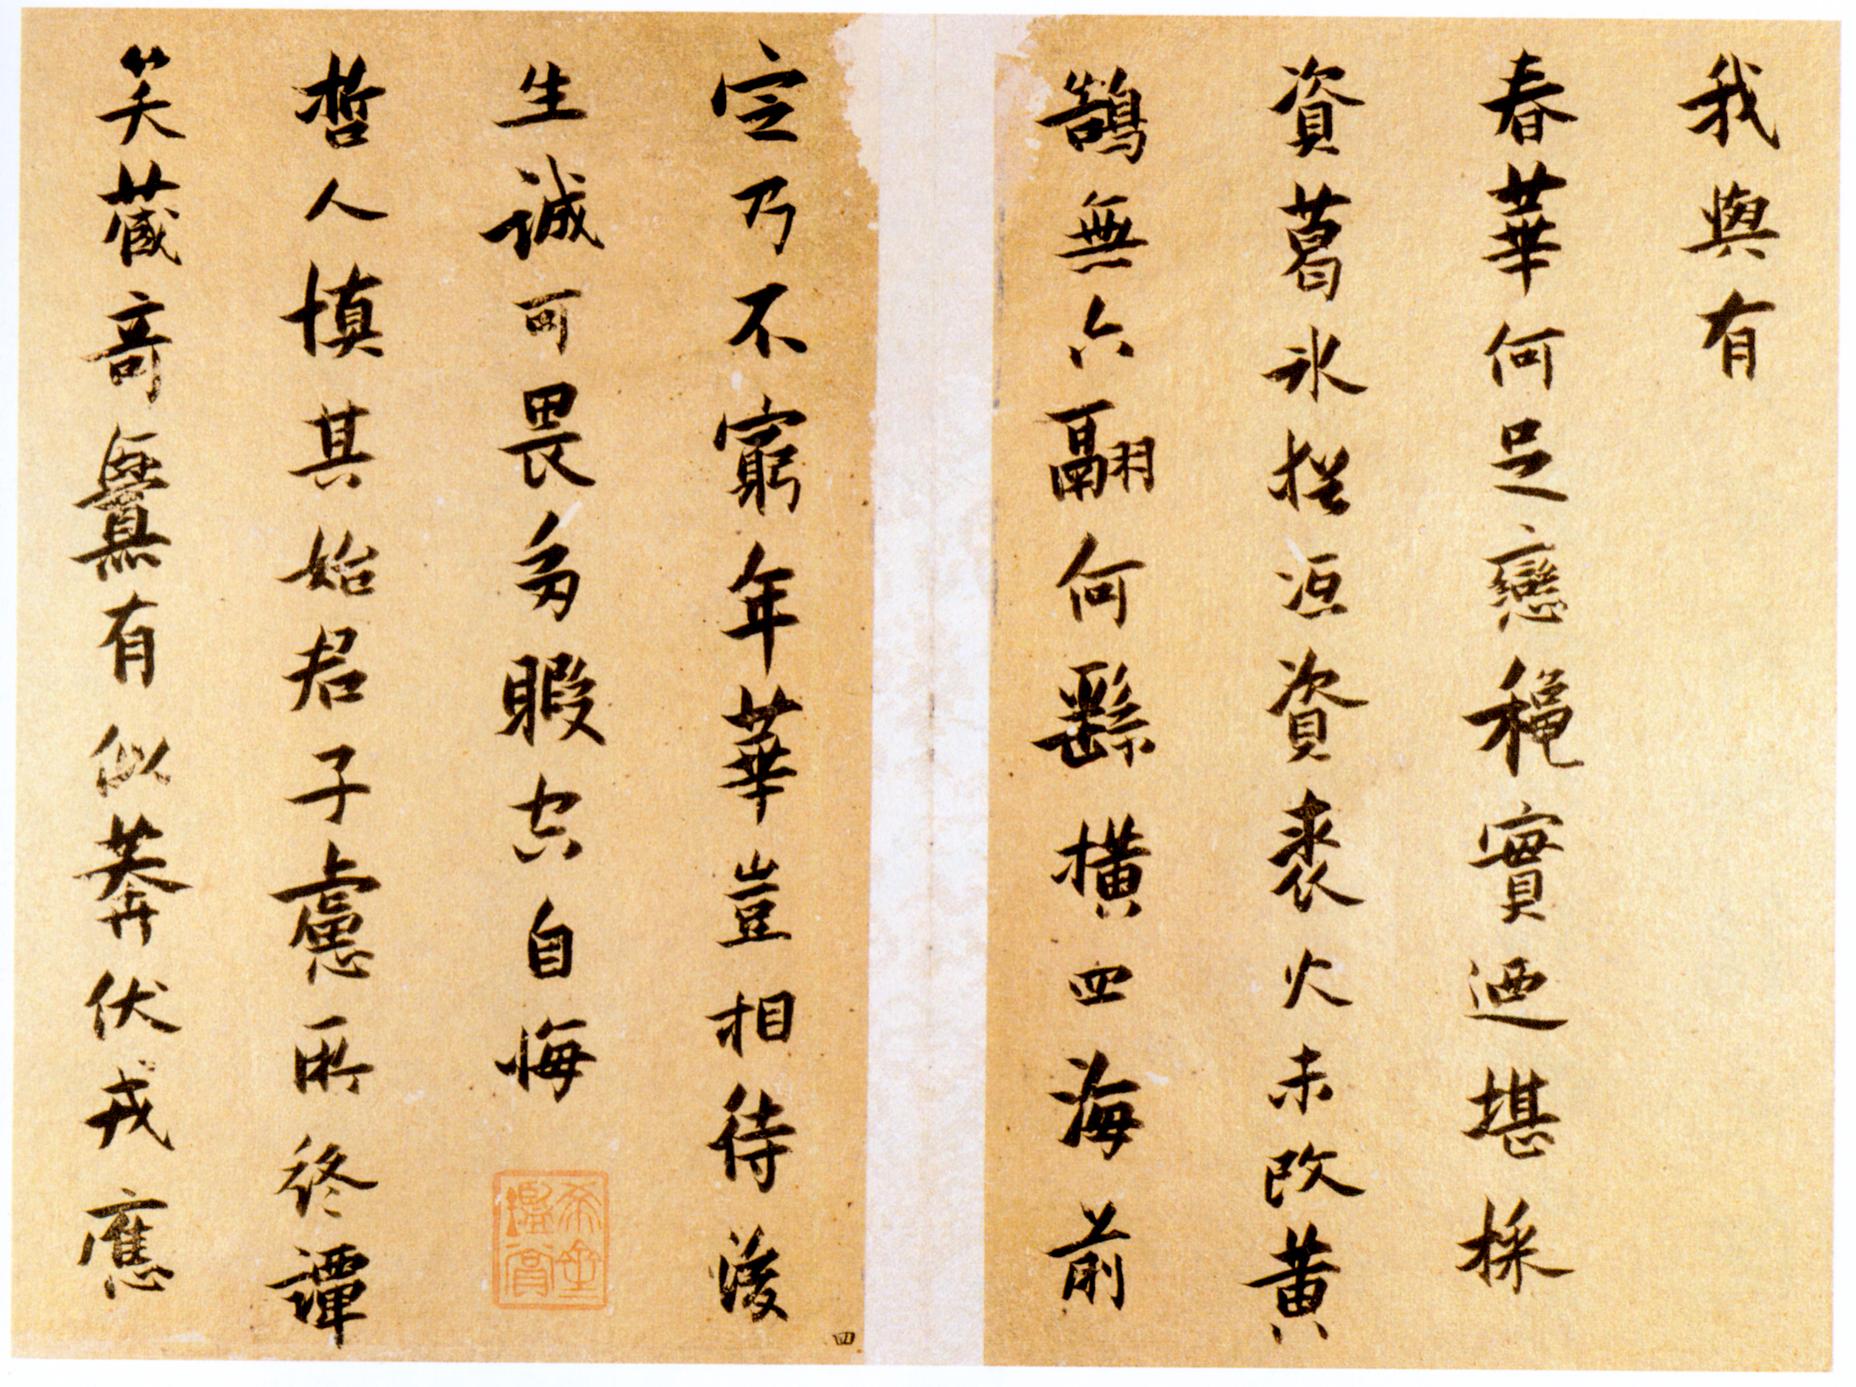 我與有
春華何足戀穐實迺堪採
資葛氷沍資裘火未改黃
鵠無六翮何繇橫四海前
定乃不窮年華豈相待後
生誠可畏多暇空自悔
哲人慎其始君子慮所終譚
笑藏奇釁有似莽伏戎應
四